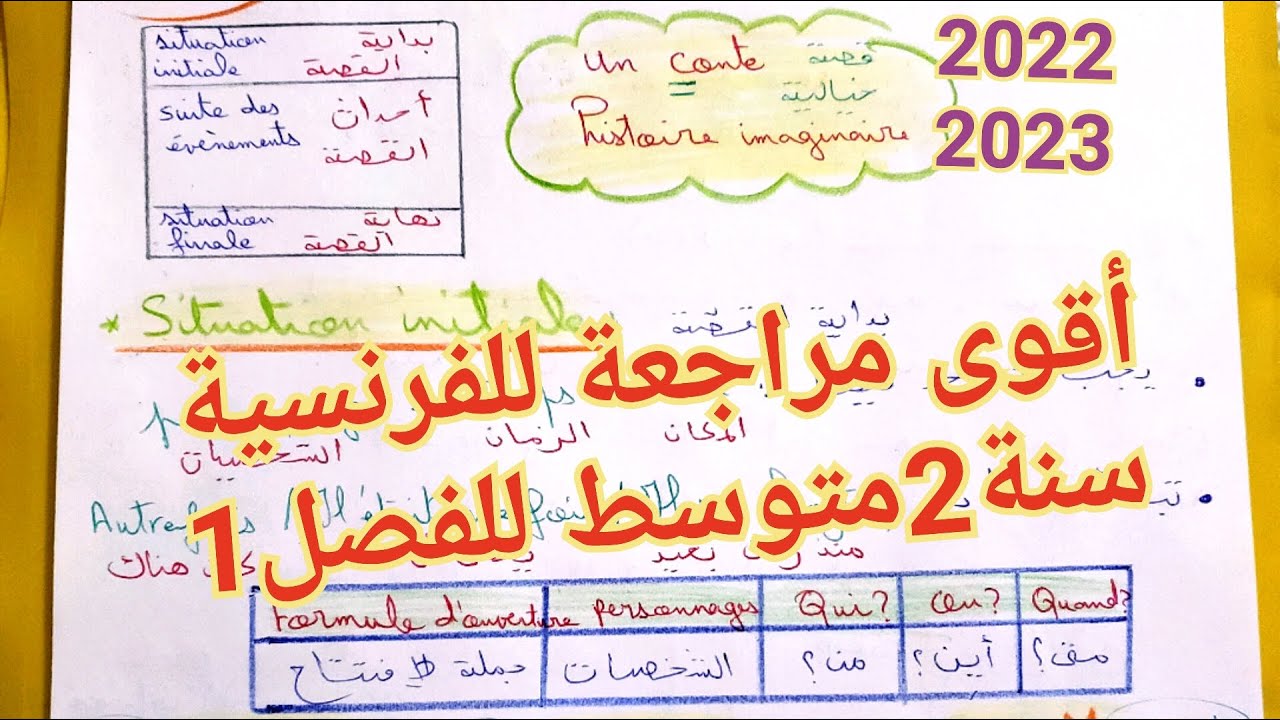 situation بداية
initiale القصة
suite des أحداث
évènements القصة
situation نهاية
finale القصة
un conte قصة
= خيالية
histoire imaginaire
2022
2023
* Situation initiale بداية القصة
أقوى مراجعة للفرنسية
يجب
الشخصيات الزمان المكان
سنة 2 متوسط للفصل 1
Autrefois / Il était
بعيد
هناك
formule d'ouverture personnages Qui? Où? Quand?
جملة الإفتتاح الشخصيات من؟ أين؟ متى؟